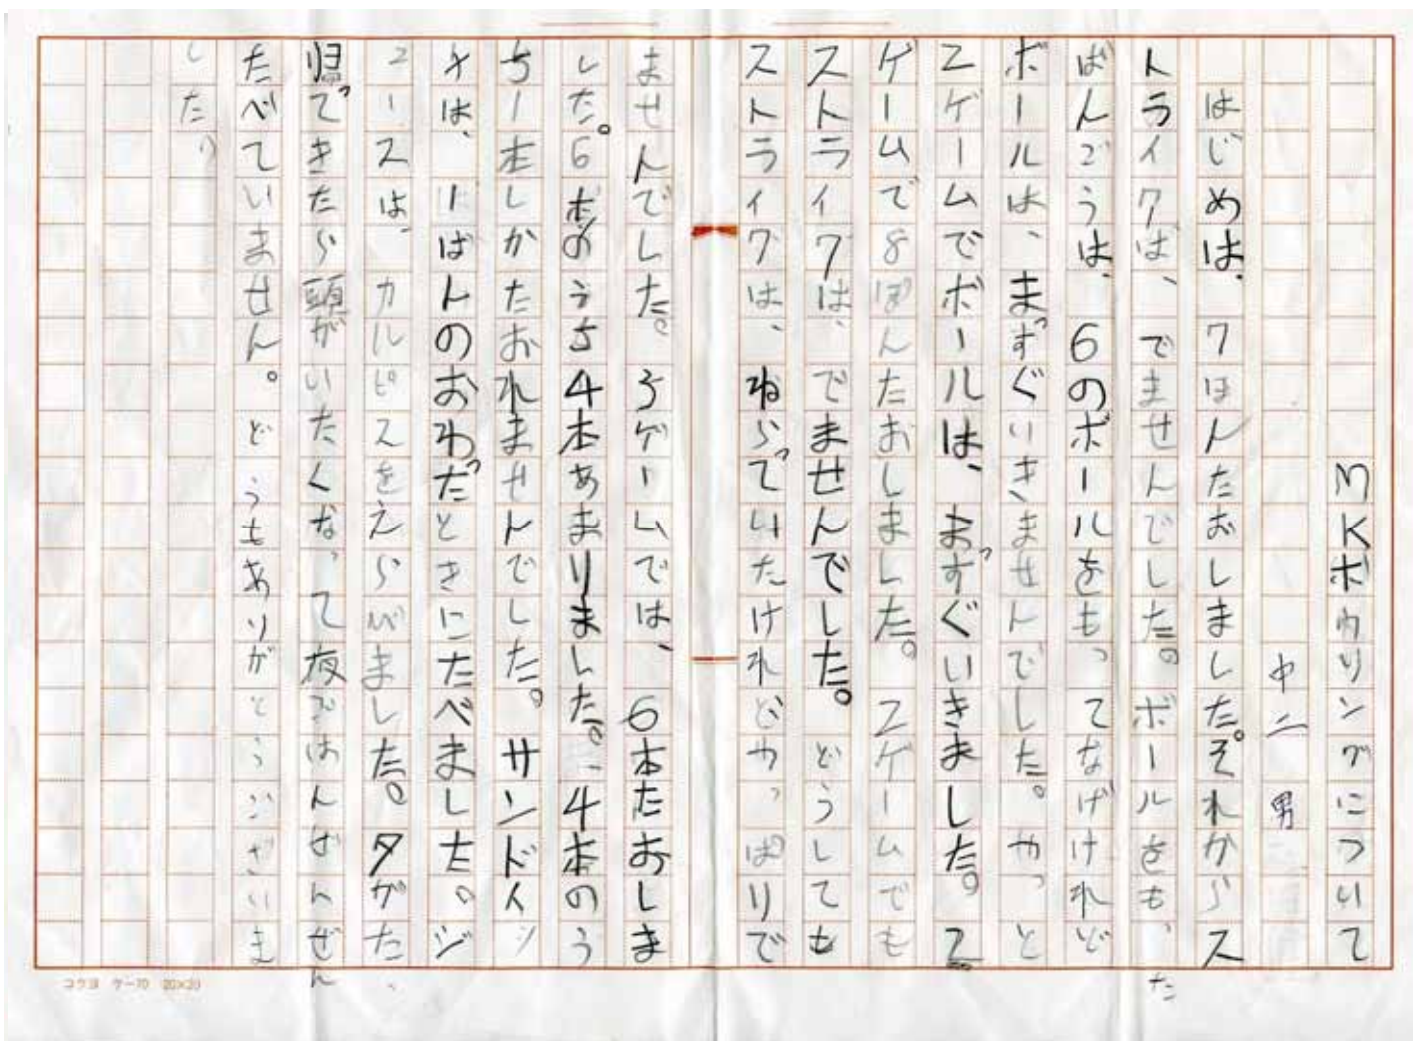 MKボウリングについて
中二 男
はじめは、7ほんたおしました。それからス
トライクは、でませんでした。ボールをも、た
ばんごうは、6のボールをもってなげけれど
ボールは、まっすぐいきませんでした。やっと
2ゲームでボールは、まっすぐいきました。2
ゲームで8ぽんたおしました。2ゲームでも
ストライクは、でませんでした。どうしても
ストライクは、ねらっていたけれどやっぱりで
ませんでした。3ゲームでは、6本たおしま
した。6本のうち4本あまりました。4本のう
ち1本しかたおれませんでした。サンドイッ
チは、1ばんのおわったときにたべました。ジ
ュースは、カルピスをえらべました。夕がた、
帰ってきたら頭がいたくなって夜ごはんはんぜん
たべていません。どうもありがとうございま
した。
コクヨ ケー70 20×20